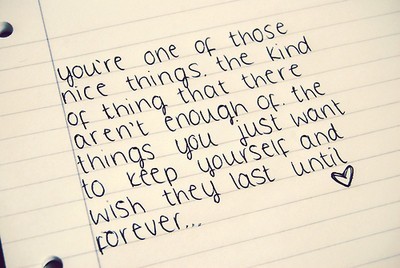 you're one of those
nice things. the kind
of thing that there
aren't enough of. the
things you just want
to keep yourself and
wish they last until
forever...